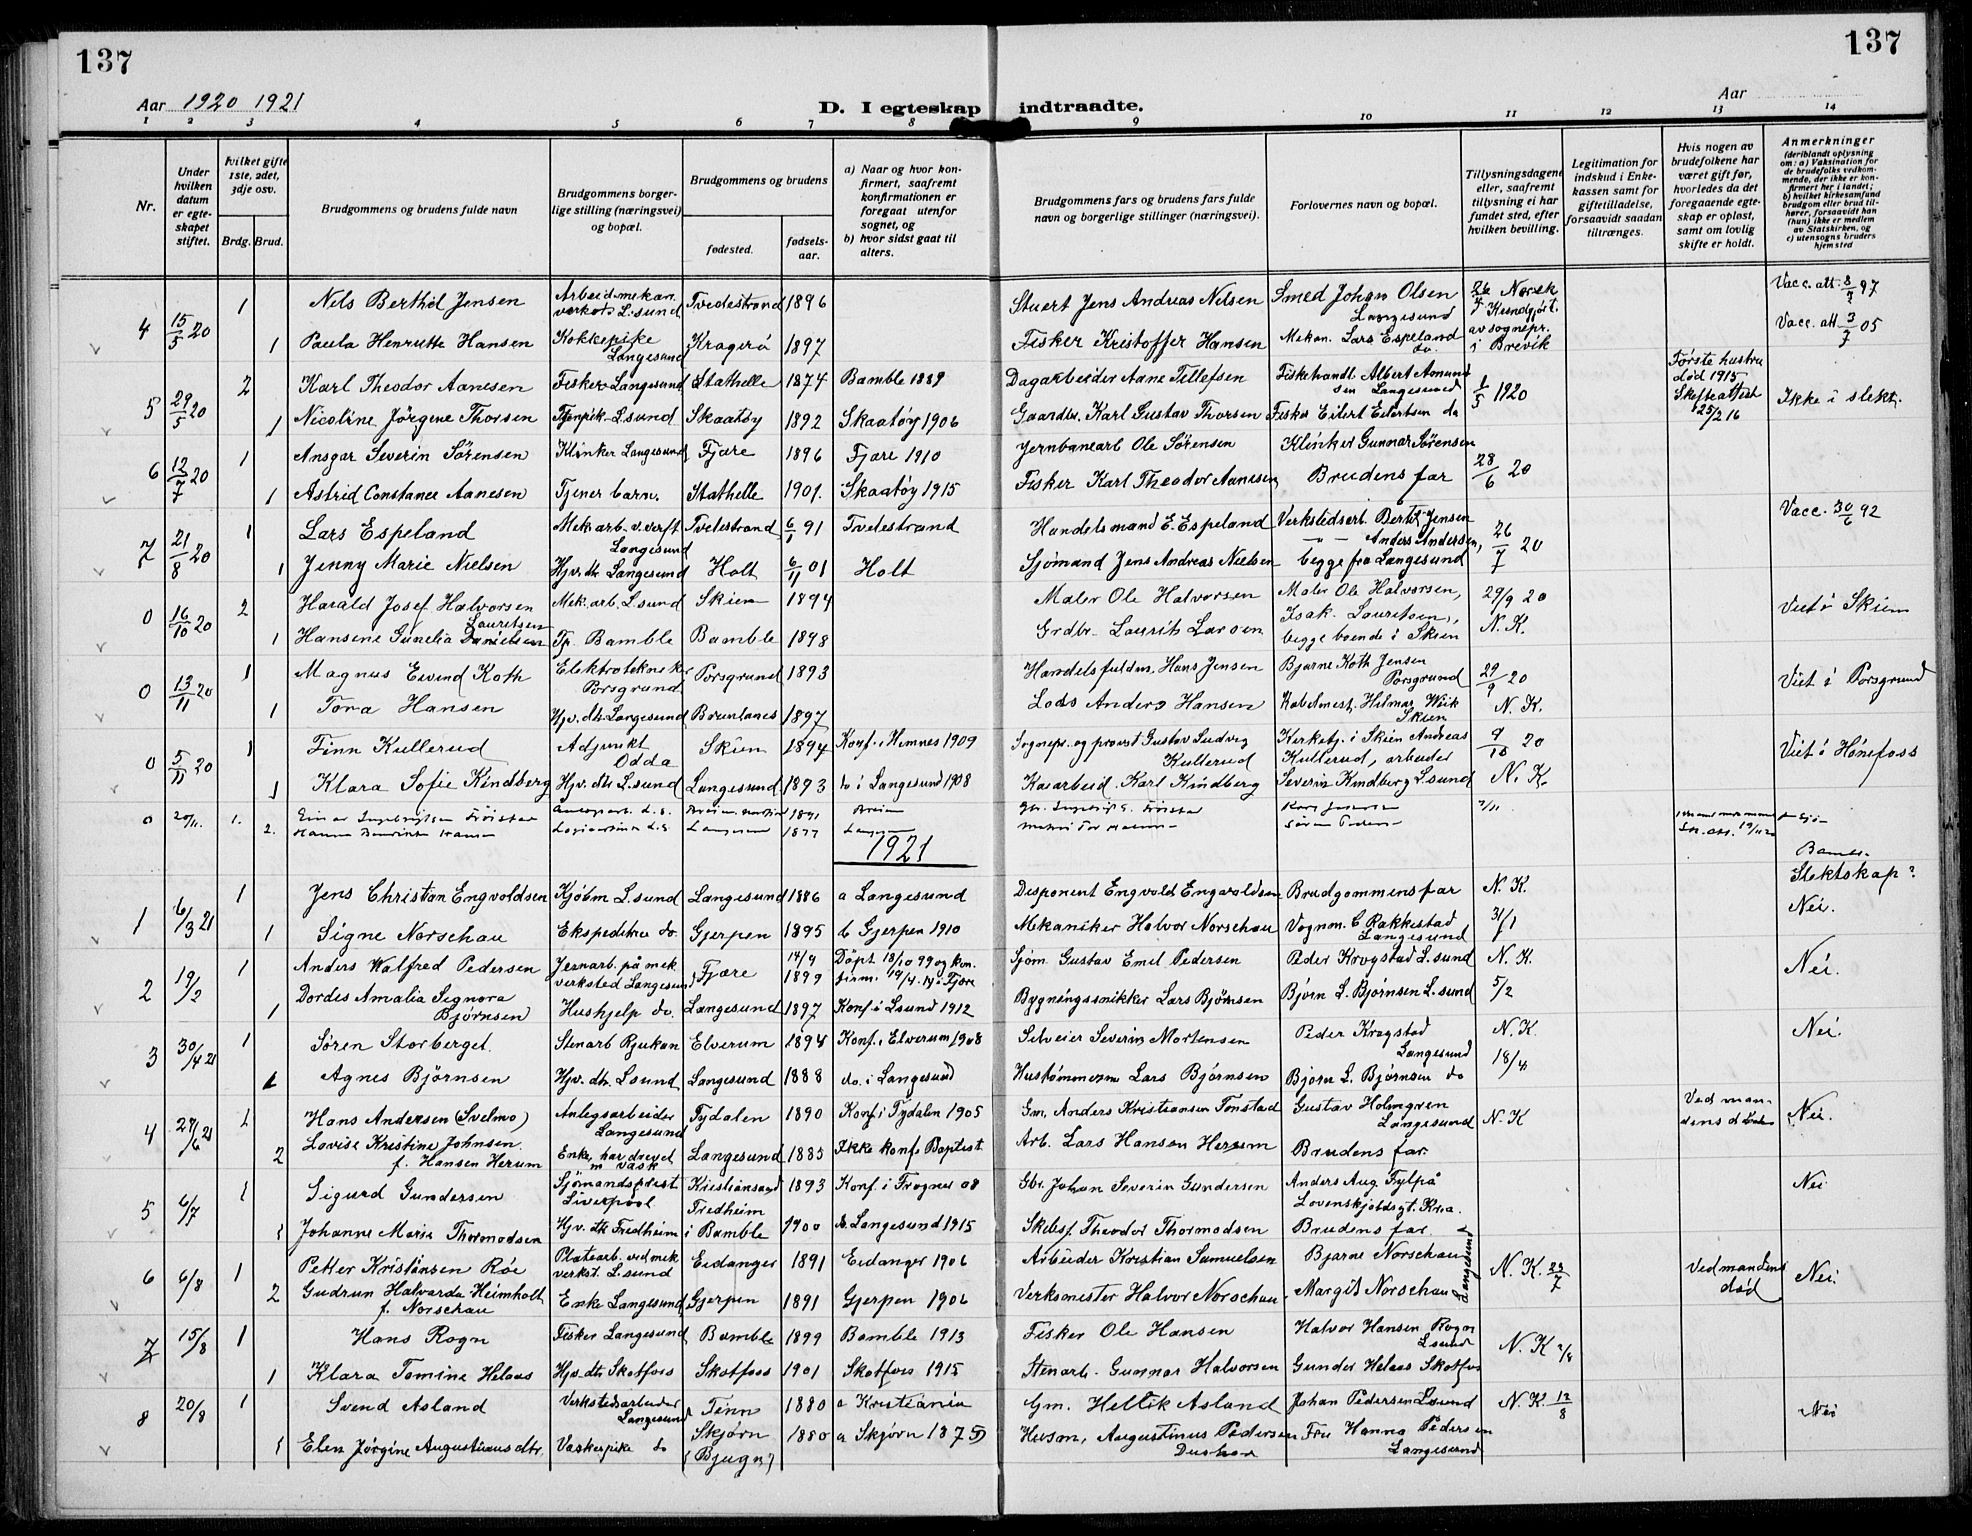 137
137
Aar 1920 1921
Aar
D. I egteskap indtraadte.
1 2 3 4 5 6 7 8 9 10 11 12 13 14
Nr.
Under hvilken datum er egteskapet stiftet.
hvilket gifte 1ste, 2det, 3dje osv.
Brdg. Brud.
Brudgommens og brudens fulde navn
Brudgommens borgerlige stilling (næringsvei) og bopæl.
Brudgommens og brudens
fødested. fødselsaar.
a) Naar og hvor konfirmert, saafremt konfirmationen er foregaat utenfor sognet, og
b) hvor sidst gaat til alters.
Brudgommens fars og brudens fars fulde navn og borgerlige stillinger (næringsvei).
Forlovernes navn og bopæl.
Tillysningsdagene eller, saafremt tillysning ei har fundet sted, efter hvilken bevilling.
Legitimation for indskud i Enkekassen samt for giftetilladelse, forsaavidt saadan tiltrænges.
Hvis nogen av brudefolkene har været gift før, hvorledes da det foregaaende egteskap er opløst, samt om lovlig skifte er holdt.
Anmerkninger (deriblandt oplysning om: a) Vaksination for de brudefolks vedkommende, der ikke er konfirmert her i landet; b) hvilket kirkesamfund brudgom eller brud tilhører, forsaavidt han (hun) ikke er medlem av Statskirken, og c) utensogns bruders hjemsted
4 15/5 20 1 Nels Berthod Jensen Arbeid. mekan. verksted L.sund Tvedestrand 1896 Stuert Jens Andreas Nelsen Smed Johan Olsen Langesund 26/4 Norsk Kundgjørt. av sognepr. i Brevik Vacc. att. 8/7 97
1 Paula Henrutte Hansen Kokkepike Langesund Kragerö 1897 Fisker Kristoffer Hansen Mekan. Lars Espeland do. Vacc. att 3/7 05
5 29/5 20 2 Karl Theodor Aanesen Fisker Langesund Stathelle 1874 Bamble 1889 Dagarbeider Aane Tellefsen Fiskehandl. Albert Asmundsen Langesund 1/5 1920 Første hustru død 1915 Skifteattest 25/2 16 Ikke i slekt.
1 Nicoline Jörgene Thorsen Tjenpik. L.sund Skaatöy 1892 Skaatöy 1906 Gaardbr. Karl Gustav Thorsen Fisker Eilert Eilertsen do
6 12/7 20 1 Ansgar Severin Sörensen Klinker Langesund Fjære 1896 Fjære 1910 Jernbanearb Ole Sörensen Klinker Gunnar Sörensen 28/6 20
1 Astrid Constance Aanesen Tjener barn. Stathelle 1901. Skaatöy 1915 Fisker Karl Theodor Aanesen Brudens far
7 21/8 20 1 Lars Espeland Mek. arb. v. verft Langesund Tvedestrand 6/1 91 Tvedestrand Handelsmand E. Espeland Verkstedsarb. Bertel Jensen 26/7 20 Vacc. 30/6 92
1 Jenny Marie Nielsen Hjv. dtr. Langesund Holt 6/11 01 Holt Sjømand Jens Andreas Nielsen Anders Andersen, begge fra Langesund
0 16/10 20 2 Harald Josef Halvorsen Mek. arb. L.sund Skien 1894 Maler Ole Halvorsen Maler Ole Halvorsen, 29/9 20 N. K. Viet i Skien
1 Hansine Gunelia Lauretsen Tp. Bamble Bamble 1898 Grdbr. Laurits Larsen Isak Lauritsen, begge boende i Skien
0 13/11 20 1 Magnus Eivind Koth Elektrotekneker Porsgrund Porsgrund 1893 Handelsfuldm. Hans Jensen Bjarne Koth Jensen Porsgrund 29/9 20 N. K. Viet i Porsgrund
1 Tora Hansen Hjv. dtr. Langesund Brunlanes 1897 Lods Anders Hansen Hilmar Wiik Skien
0 5/11 20 1 Finn Kullerud Adjunkt Odda Skien 1894 Konf. i Hemnes 1909 Sognepr. og provst Gustav Ludvig Kullerud Kirketj. i Skien Andreas Kullerud, arbeider 9/10 20 N. K. Viet i Hönefoss
1 Klara Sofie Kindberg Hjv. dtr. L.sund Langesund 1893 do i Langesund 1908 Kaiarbeid. Karl Kindberg Severin Kindberg L.sund
0 20/11. 1. Einar Ingebrigtsen 1891
2. Hanna 1877
1921
1 6/3 21 1 Jens Christian Engvoldsen Kjöbm L.sund Langesund 1886 a Langesund Disponent Engvold Engvoldsen Brudgommens far N. K. 31/1 Slektskap? Nei.
1 Signe Norschau Ekspeditrice do. Gjerpen 1895 b Gjerpen 1910 Mekaniker Halvor Norschau Vognm. C Rakkestad Langesund
2 19/2 1 Anders Walfred Pedersen Jernarb. på mek verksted Langesund Fjære 14/9 1899 Döpt 18/10 99 og konfirm. 19/4 14 i Fjære Sjøm Gustav Emil Pedersen Peder Krogstad L.sund N. K. 5/2 Nei.
1 Dordes Amalia Signora Bjørnsen Hushjelp do. Langesund 1897 Konf i Lsund 1912 Bygningssnikker Lars Bjørnsen Bjørn L. Bjørnsen L.sund
3 30/4 21 1 Sören Storberget Stenarb Rjukan Elverum 1894 Konf. i Elverum 1908 Selveier Severin Mortensen Peder Krogstad Langesund N. K. 18/4 Nei.
1 Agnes Bjørnsen Hjv. dtr. Lsund Langesund 1888 do. i Langesund Hustömmerm Lars Bjørnsen Bjørn L. Bjørnsen do
4 27/6 21 1 Hans Andersen (Svelmo) Anlegsarbeider Langesund Tydalen 1890 Konf i Tydalen 1905 Gm. Anders Kristiansen Tonstad Gustav Holmgren Langesund N. K Ved mandens död Nei.
2 Lovise Kristine Johnsen f. Hansen Herum Enke, har drevet m vask Langesund 1885 Ikke konf. Baptist Arb. Lars Hansen Herum Brudens far
5 6/7 1 Sigurd Gundersen Sjømandsprest Liverpool Kristiansand 1893 Konf. i Frogner 08 Gbr. Johan Severin Gundersen Anders Aug. Tylpå Lovenskjoldsgt. Kra. Nei
1 Johanne Marie Thormodsen Hjv. dtr Fredheim Fredheim i Bamble 1900 do. Langesund 1915 Skibsf. Theodor Thormodsen Brudens far
6 6/8 1 Petter Kristiansen Röe Platearb. ved mek verkst. L.sund Eidanger 1891 Eidanger 1906 Arbeider Kristian Samuelsen Bjarne Norschau N. K. 23/7 Ved mandens död Nei.
2 Gudrun Halvarda Heimholt f. Norschau Enke Langesund Gjerpen 1891 Gjerpen 1906 Verksmester Halvor Norschau Margit Norschau Langesund
7 15/8 1 Hans Rogn Fisker Langesund Bamble 1899 Bamble 1913 Fisker Ole Hansen Halvor Hansen Rogn Lsund N. K 2/8
1 Klara Tomine Helaas Hjv. dtr Skotfoss Skotfoss 1901 Skotfoss 1915 Stenarb. Gunnar Halvorsen Gunder Helaas Skotfoss
8 20/8 1 Svend Asland Verkstedsarbeider Langesund Tinn 1880 a Kristiania Gm. Hellik Asland Johan Pedersen Lsund N. K. 12/8 Nei
1 Elen Jörgine Augustinusdtr. Vaskepike do Skjörn (Bjugn) 1880 a Skjörn 1875 Husm. Augustinus Pedersen Fru Hanna Pedersen Langesund